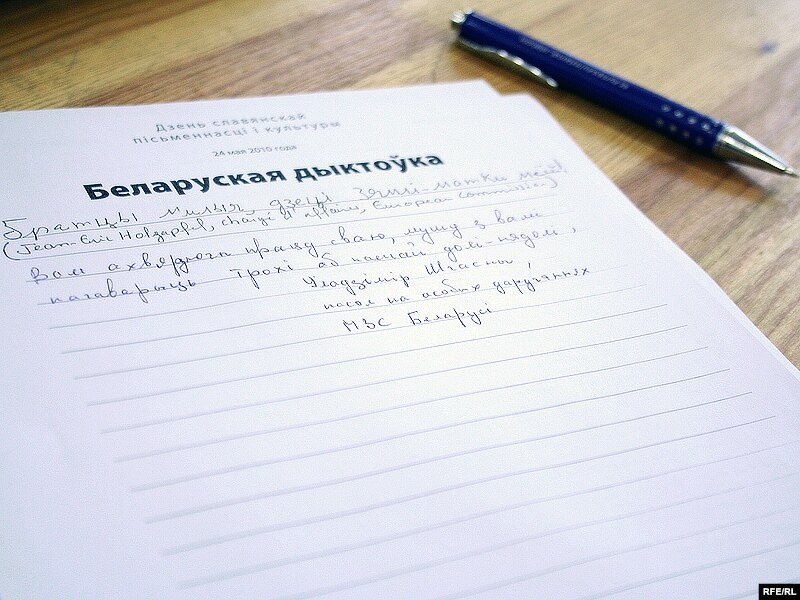 Дзень славянскай
пісьменнасці і культуры
24 мая 2010 года
Беларуская дыктоўка
Братцы мілыя, дзеці Зямлі-маткі маёй!
(Jean-Eric Holzapfel, chargé d'affaires, European Commission)
Вам ахвяруючы працу сваю, мушу з вамі
пагаварыць трохі аб нашай долі-нядолі,
Уладзімір Шчасны,
пасол па особых даручэннях
МЗС Беларусі
RFE/RL